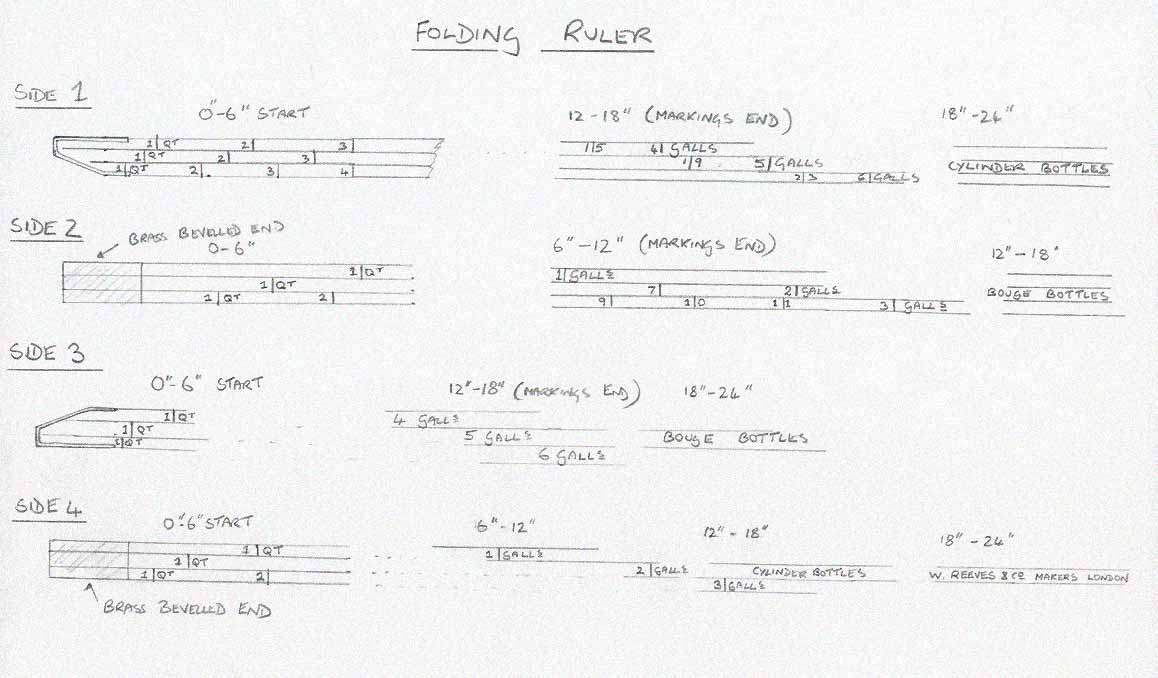 FOLDING RULER
SIDE 1
0"-6" START
12-18" (MARKINGS END)
18"-24"
1|QT 2| 3|
1|QT 2| 3|
1|QT 2| 3| 4|
1|5 4|GALLS
1|9 5|GALLS
2|3 6|GALLS
CYLINDER BOTTLES
SIDE 2
BRASS BEVELLED END
0-6"
6"-12" (MARKINGS END)
12"-18"
1|QT
1|QT
1|QT 2|
1|GALLS
7| 2|GALLS
9| 1|0 1|1 3|GALLS
BOUGE BOTTLES
SIDE 3
0"-6" START
12"-18" (MARKINGS END)
18"-24"
1|QT
1|QT
1|QT
4 GALLS
5 GALLS
6 GALLS
BOUGE BOTTLES
SIDE 4
0"-6" START
6"-12"
12"-18"
18"-24"
1|QT
1|QT
1|QT 2|
1|GALLS
2|GALLS
3|GALLS
CYLINDER BOTTLES
W. REEVES & Co MAKERS LONDON
BRASS BEVELLED END